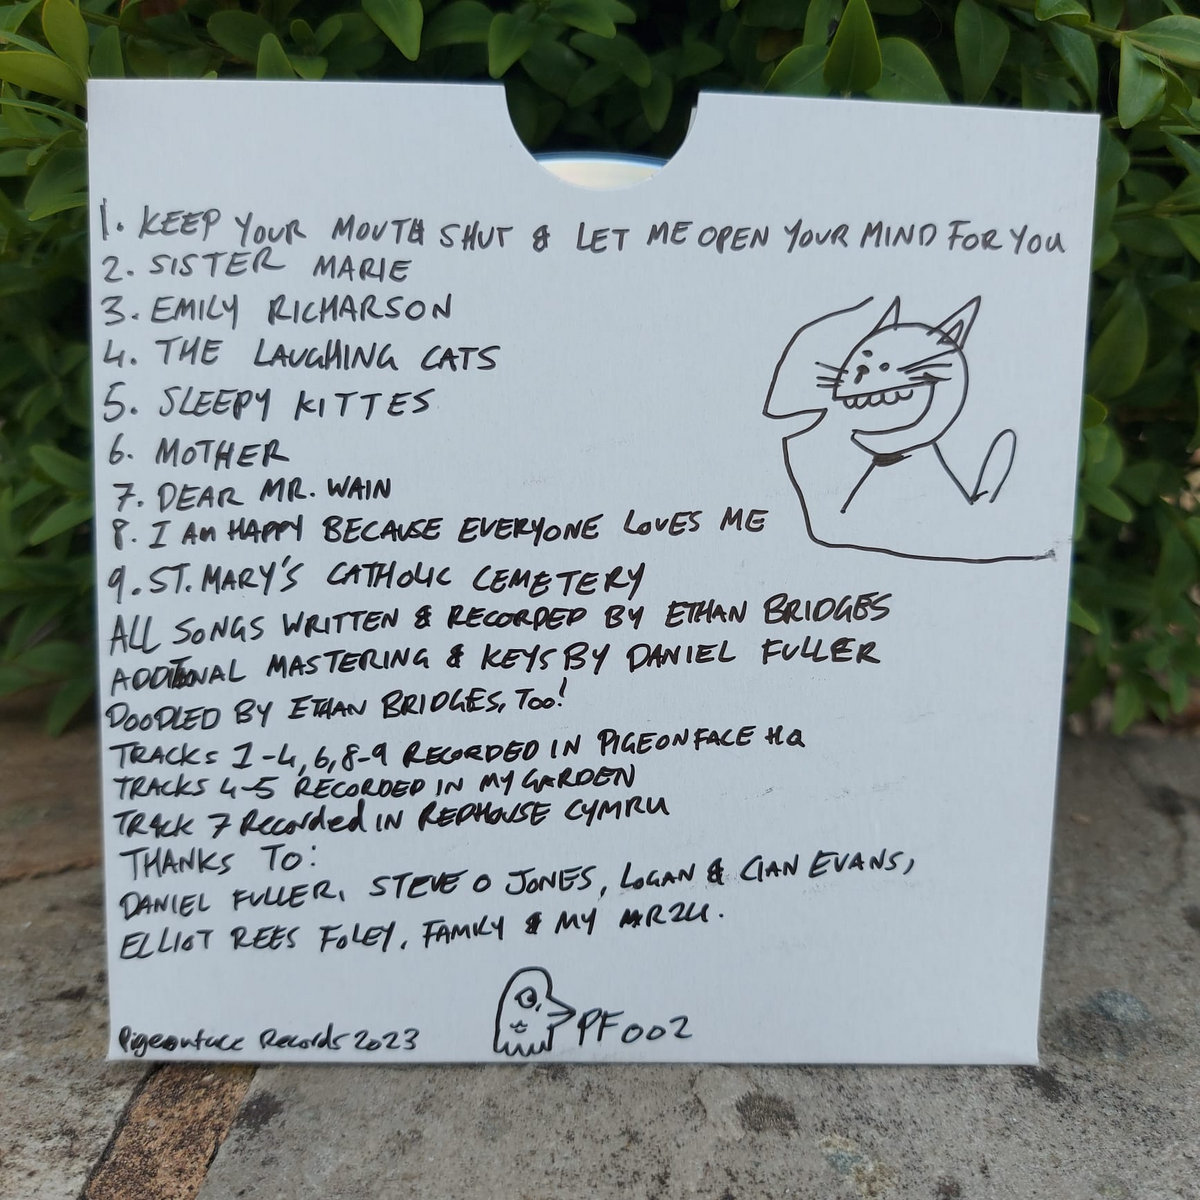 1. KEEP YOUR MOUTH SHUT & LET ME OPEN YOUR MIND FOR YOU
2. SISTER MARIE
3. EMILY RICHARSON
4. THE LAUGHING CATS
5. SLEEPY KITTES
6. MOTHER
7. DEAR MR. WAIN
8. I AM HAPPY BECAUSE EVERYONE LOVES ME
9. ST. MARY'S CATHOLIC CEMETERY
ALL SONGS WRITTEN & RECORDED BY ETHAN BRIDGES
ADDITIONAL MASTERING & KEYS BY DANIEL FULLER
DOODLED BY ETHAN BRIDGES, TOO!
TRACKS 1-4, 6, 8-9 RECORDED IN PIGEONFACE HQ
TRACKS 4-5 RECORDED IN MY GARDEN
TRACK 7 Recorded IN REDHOUSE CYMRU
THANKS TO:
DANIEL FULLER, STEVE O JONES, LOGAN & CIAN EVANS,
ELLIOT REES FOLEY, FAMILY & MY
Pigeonface Records 2023
PF002